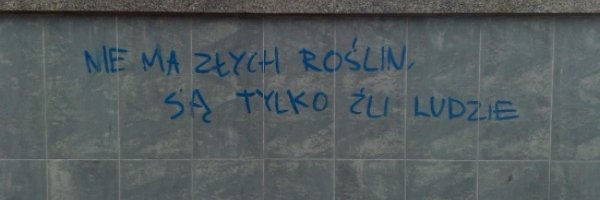 NIE MA ZŁYCH ROŚLIN,
SĄ TYLKO ŹLI LUDZIE